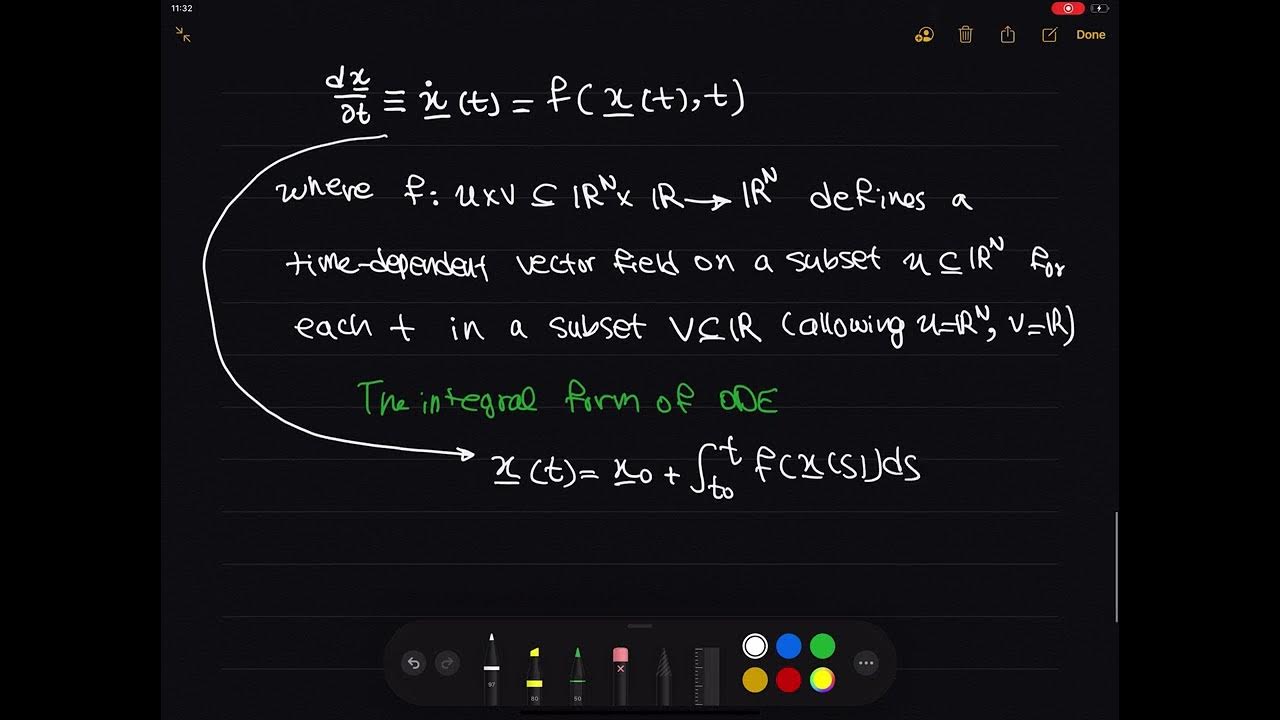 11:32
Done
dx̲/∂t ≡ ẋ̲(t) = f(x̲(t),t)
where f: u×v ⊆ ℝᴺ× ℝ → ℝᴺ defines a
time-dependent vector field on a subset u ⊆ ℝᴺ for
each t in a subset V⊆ℝ (allowing u=ℝᴺ, v=ℝ)
The integral form of ODE
x̲(t) = x̲₀ + ∫ₜ₀ᵗ f(x̲(s))ds
97 80 50